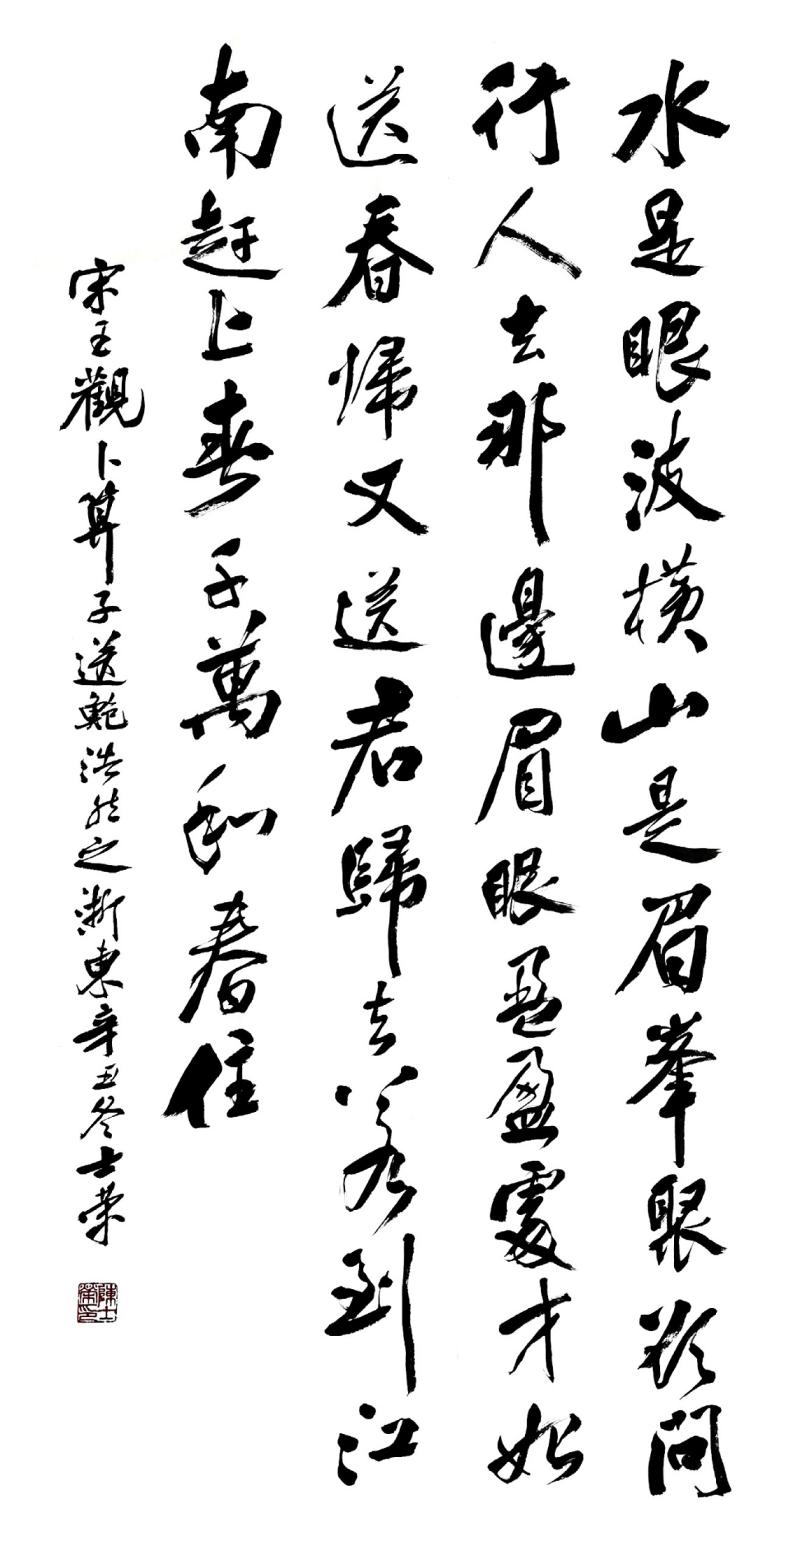 水是眼波橫山是眉峯聚欲問
行人去那邊眉眼盈盈處才始
送春帰又送君歸去若到江
南赶上春千萬和春住
宋王觀卜算子送鮑浩然之浙東辛丑冬士榮
陳士榮印